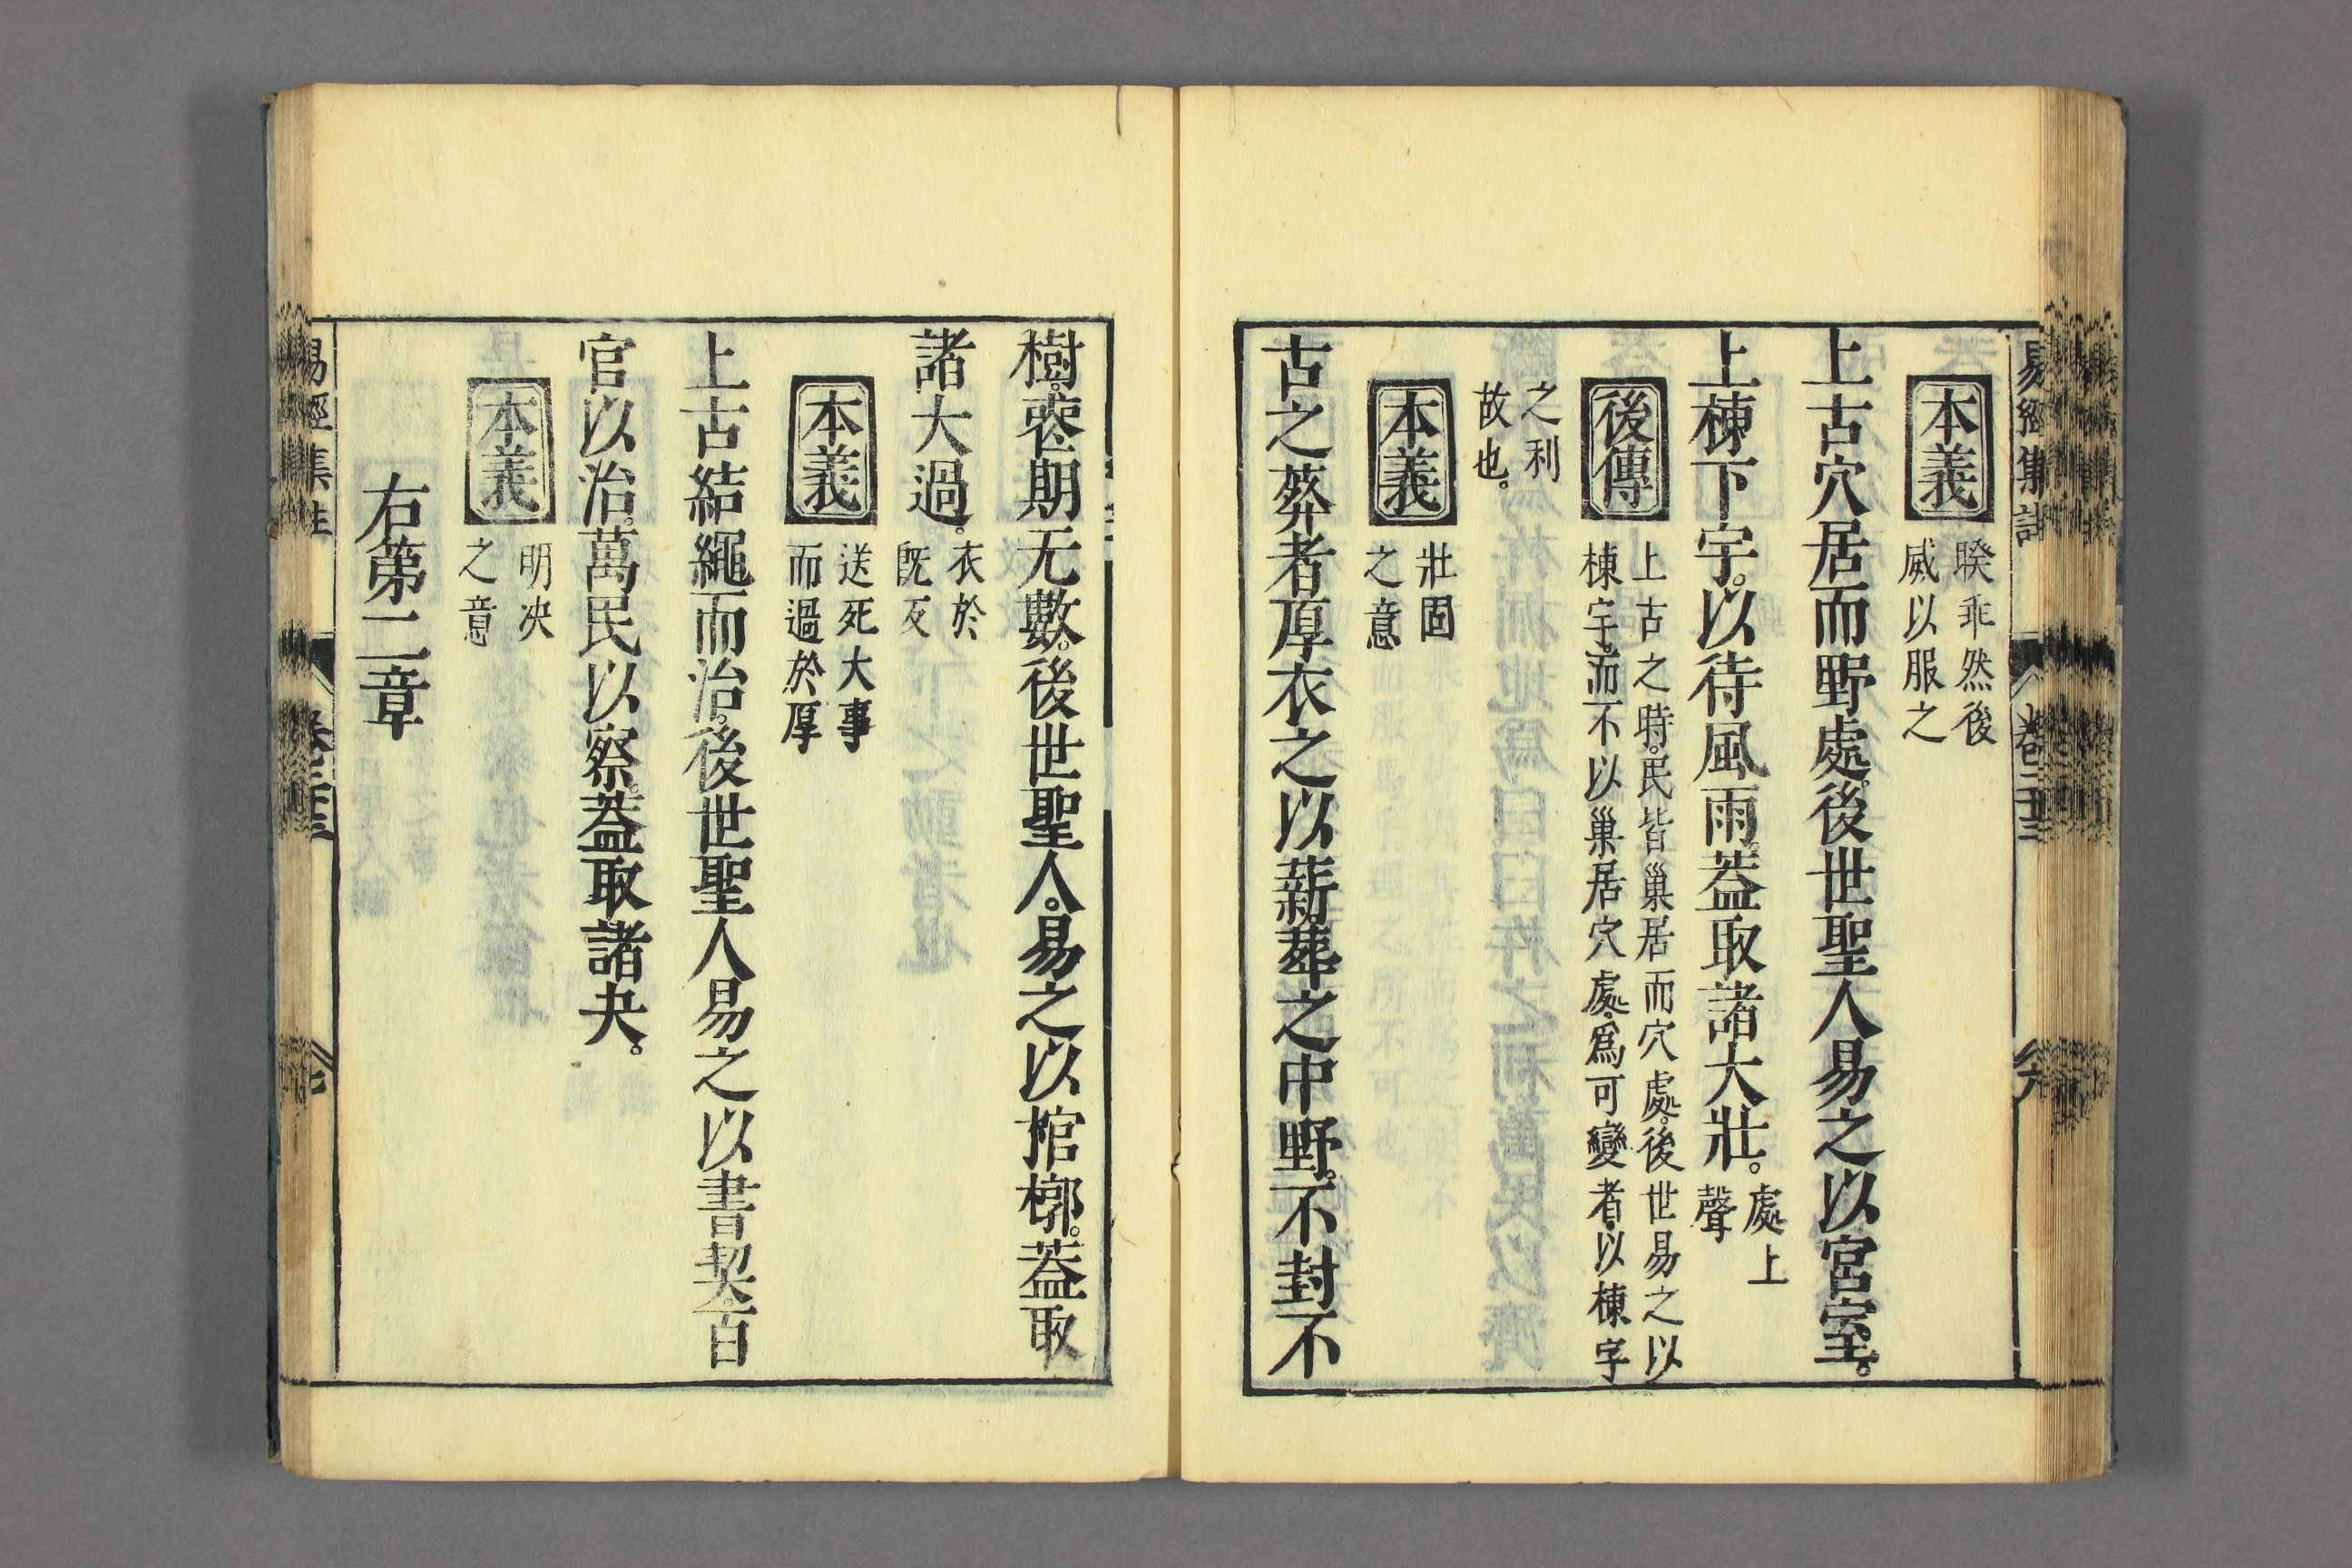 本義 睽乖然後
威以服之
上古穴居而野處後世聖人易之以宮室。
上棟下宇。以待風雨。蓋取諸大壯。處上
聲
後傳 上古之時。民皆巢居而穴處。後世易之以
棟宇。而不以巢居穴處。爲可變者。以棟宇
之利
故也。
本義 壯固
之意
古之葬者厚衣之以薪。葬之中野。不封不
樹。喪期无數。後世聖人。易之以棺槨。蓋取
諸大過。衣於
旣反
本義 送死大事
而過於厚
上古結繩而治。後世聖人易之以書契。百
官以治。萬民以察。蓋取諸夬。
本義 明决
之意
右第二章